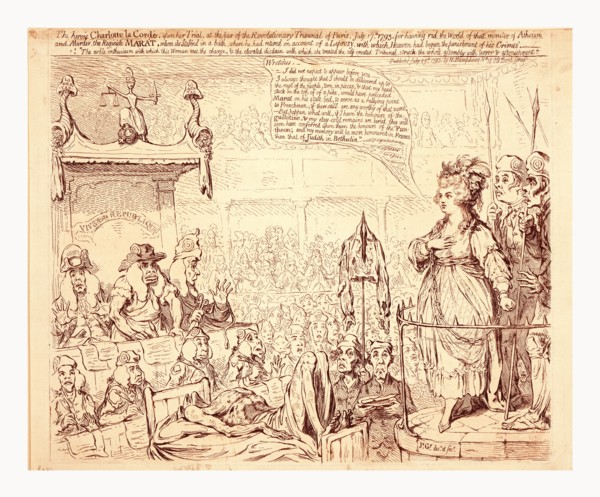 The heroic Charlotte la Cordé, upon her Trial, at the bar of the Revolutionary Tribunal of Paris, July 17th 1793, for having rid the World of that monster of Atheism
and Murder, the Regicide MARAT, whom she Stabbed in a bath, where he had retired on account of a Leprosy, with which, Heaven had begun the punishment of his Crimes.
"The noble enthusiasm with which this Woman met the charge, & the elevated disdain with which she treated the self created Tribunal, struck the whole assembly with terror & astonishment."
Published July 29th 1793, by H. Humphrey No. 18 Old Bond Street
Wretches,
I did not expect to appear before you
I always thought that I should be delivered up to
the rage of the people, torn in pieces, & that my head,
stuck on the top of a pike, would have preceded
Marat on his state bed, to serve as a rallying point
to Frenchmen, if there still are any worthy of that name.
But, happen what will, if I have the honours of the
guillotine, & my clay cold remains are buried, they will
soon have conferred upon them the honours of the Pan-
theon; and my memory will be more honoured in France
than that of Judith in Bethulia.
VIVE LA REPUBLIQUE
Js. Gy. des. et fect.